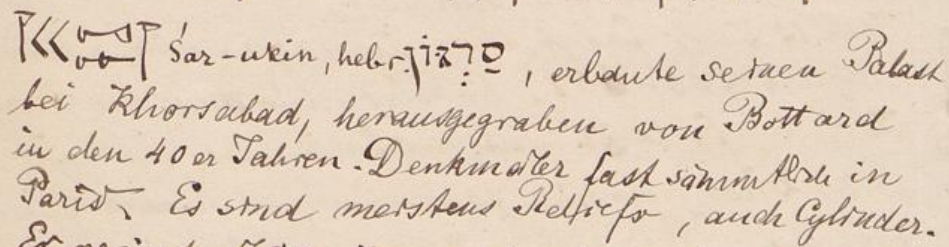 𒁹𒌋𒌋 Šar-ukin, hebr. סַרְגוֹן, erbaute seinen Palast
bei Khorsabad, herausgegraben von Bottard
in den 40er Jahren. Denkmäler fast sämmtlich in
Paris. Es sind meistens Reliefs, auch Cylinder.